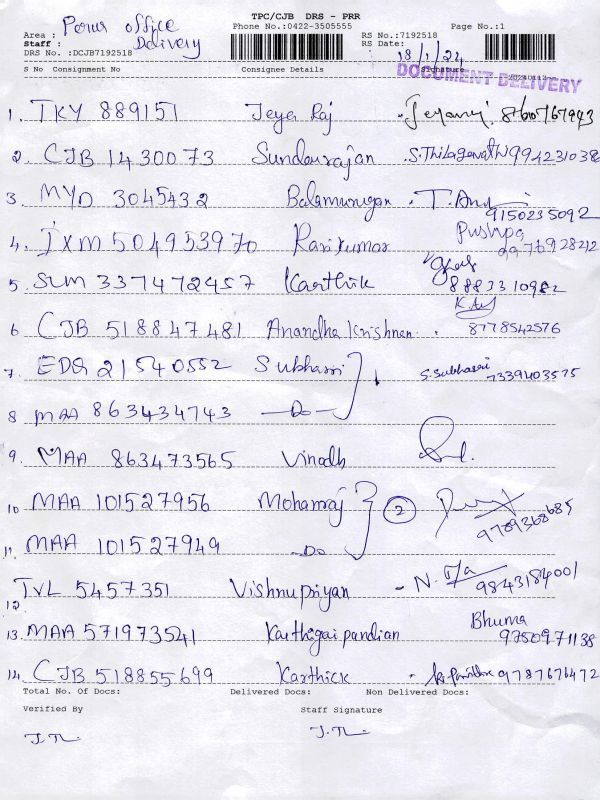 TPC/CJB DRS - PRR
Area : Porur office Phone No.:0422-3505555 Page No.:1
Staff : Delivery RS No.:7192518
DRS No. :DCJB7192518 RS Date: 18/1/24
S No Consignment No Consignee Details Signature
DOCUMENT DELIVERY
1. TKY 889151 Jeya Raj
2. CJB 1430073 Sundarrajan S.Thilagavathi 994231038
3 MYD 3045432 Balamurugan T.
9150235092
4. IXM 504953970 Ravikumar Pushpa
9976928212
5 SUM 337472457 Karthik
8883310982
6 CJB 518847481 Anandha Krishnan 8778542576
7. EDQ 21540552 Subhasri S.Subhasri
7339403575
8 MAA 863434743 —Do—
9. MAA 863473565 Vinodh
10 MAA 101527956 Mohanraj 2
9789368685
11. MAA 101527949 —Do
12. TVL 5457351 Vishnupriyan - N. 9843184001
13. MAA 571973541 Karthigaipandian Bhuma
9750971138
14. CJB 518855699 Karthick 9787676472
Total No. Of Docs: Delivered Docs: Non Delivered Docs:
Verified By Staff Signature